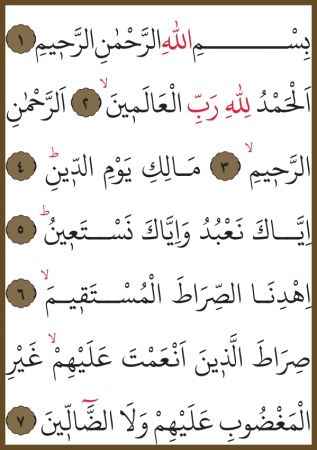 بِسْمِ اللهِ الرَّحْمٰنِ الرَّحٖيمِ ١
اَلْحَمْدُ لِلّٰهِ رَبِّ الْعَالَمٖينَۙ ٢ اَلرَّحْمٰنِ
الرَّحٖيمِۙ ٣ مَالِكِ يَوْمِ الدّٖينِؕ ٤
اِيَّاكَ نَعْبُدُ وَاِيَّاكَ نَسْتَعٖينُؕ ٥
اِهْدِنَا الصِّرَاطَ الْمُسْتَقٖيمَۙ ٦
صِرَاطَ الَّذٖينَ اَنْعَمْتَ عَلَيْهِمْۙ غَيْرِ
الْمَغْضُوبِ عَلَيْهِمْ وَلَا الضَّٓالّٖينَ ٧